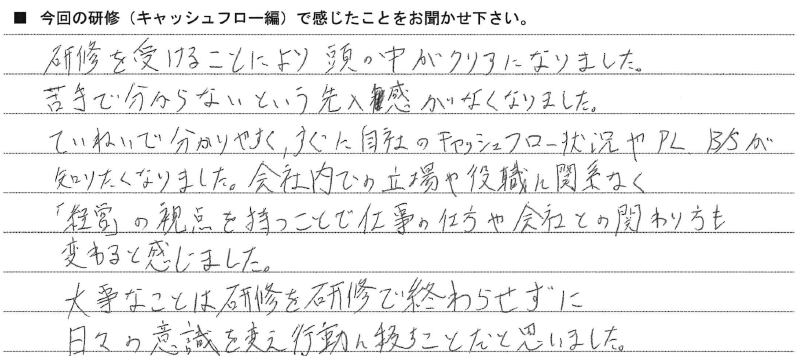 ■ 今回の研修（キャッシュフロー編）で感じたことをお聞かせ下さい。
研修を受けることにより頭の中がクリアになりました。
苦手で分からないという先入感がなくなりました。
ていねいで分かりやすく、すぐに自社のキャッシュフロー状況やPL、B/Sが
知りたくなりました。会社内での立場や役職に関係なく
「経営」の視点を持つことで仕事の仕方や会社との関わり方も
変わると感じました。
大事なことは研修を研修で終わらせずに
日々の意識を変え行動に移すことだと思いました。